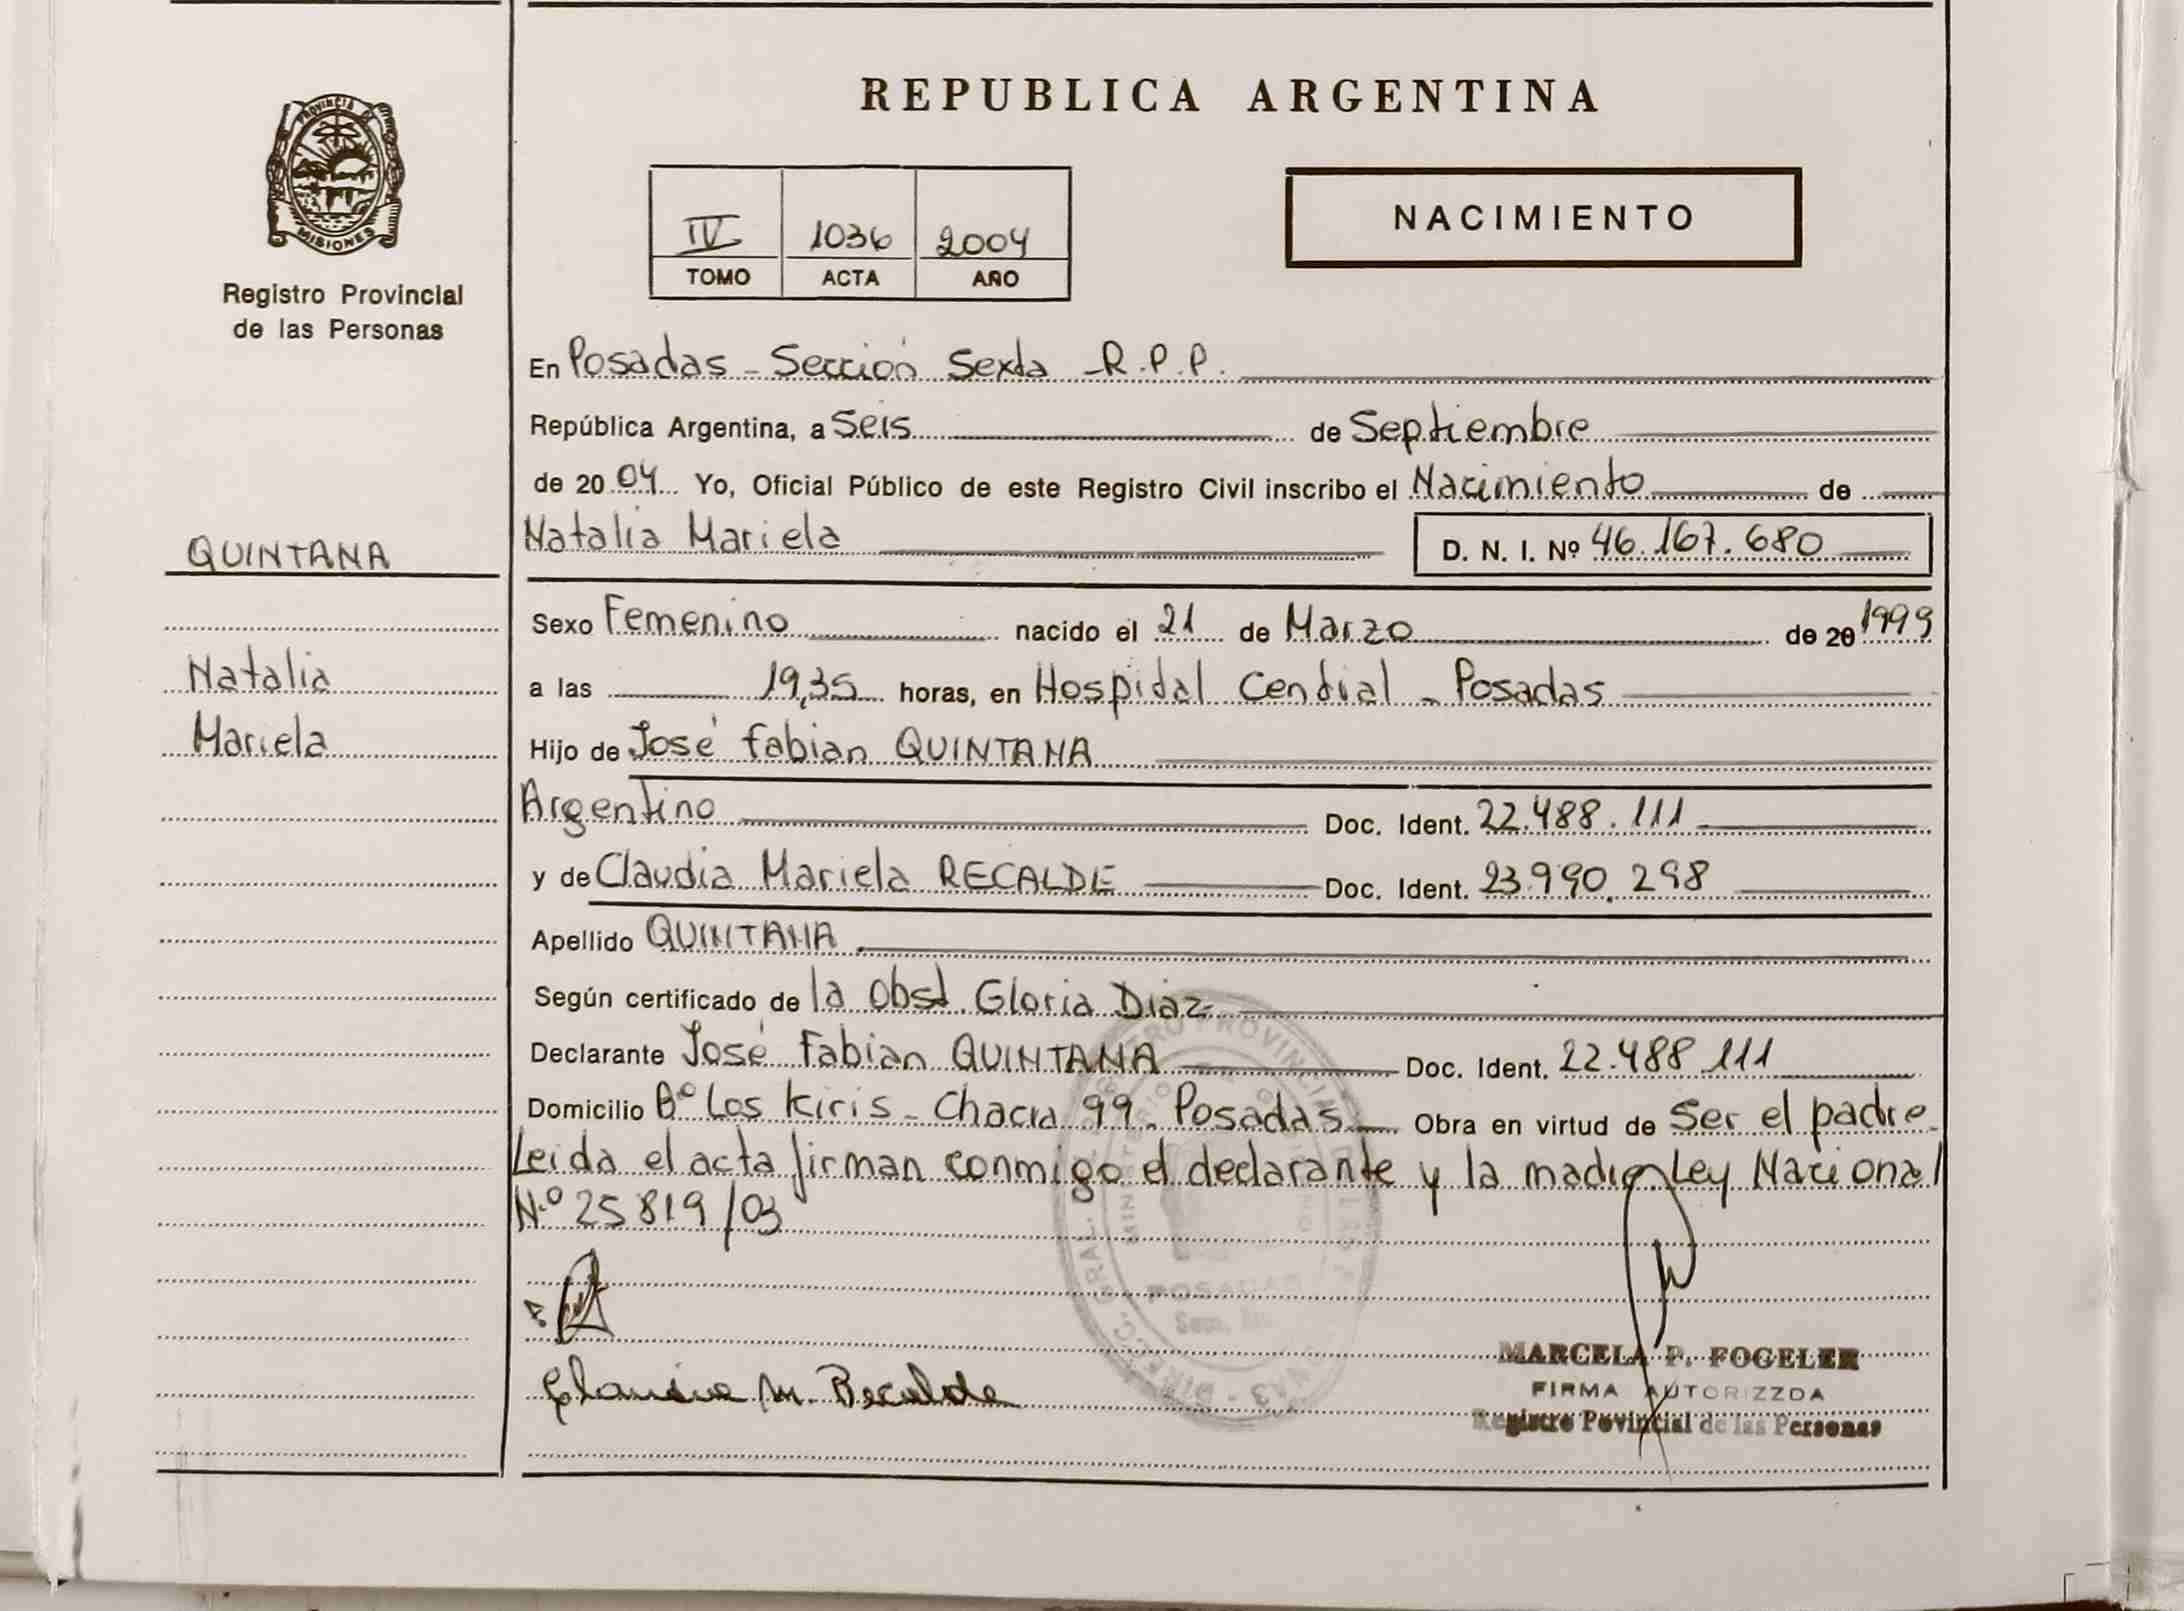 REPUBLICA ARGENTINA
PROVINCIA DE
MISIONES
Registro Provincial
de las Personas
IV 1036 2004
TOMO ACTA AÑO
NACIMIENTO
En Posadas - Sección Sexta - R.P.P.
República Argentina, a Seis de Septiembre
de 2004 Yo, Oficial Público de este Registro Civil inscribo el Nacimiento de
QUINTANA
Natalia
Mariela
Natalia Mariela D. N. I. Nº 46.167.680
Sexo Femenino nacido el 21 de Marzo de 20 1999
a las 19,35 horas, en Hospital Central - Posadas
Hijo de José Fabian QUINTANA
Argentino Doc. Ident. 22.488.111
y de Claudia Mariela RECALDE Doc. Ident. 23.990.298
Apellido QUINTANA
Según certificado de la Obst. Gloria Diaz
Declarante José Fabian QUINTANA Doc. Ident. 22.488.111
Domicilio Bº Los Kiris - Chacra 99 - Posadas Obra en virtud de Ser el padre.
Leida el acta firman conmigo el declarante y la madre. Ley Nacional
N.º 25819/03
Claudia M. Recalde
POSADAS
MARCELA P. FOGELER
FIRMA AUTORIZZDA
Registro Povincial de las Personas